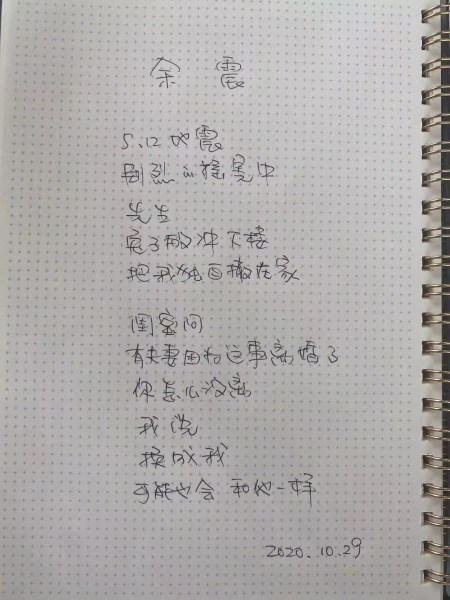 余 震
5.12地震
剧烈的摇晃中
先生
疯了般冲下楼
把我独自撇在家
闺蜜问
有夫妻因为这事离婚了
你怎么没离
我说
换成我
可能也会 和他一样
2020.10.29